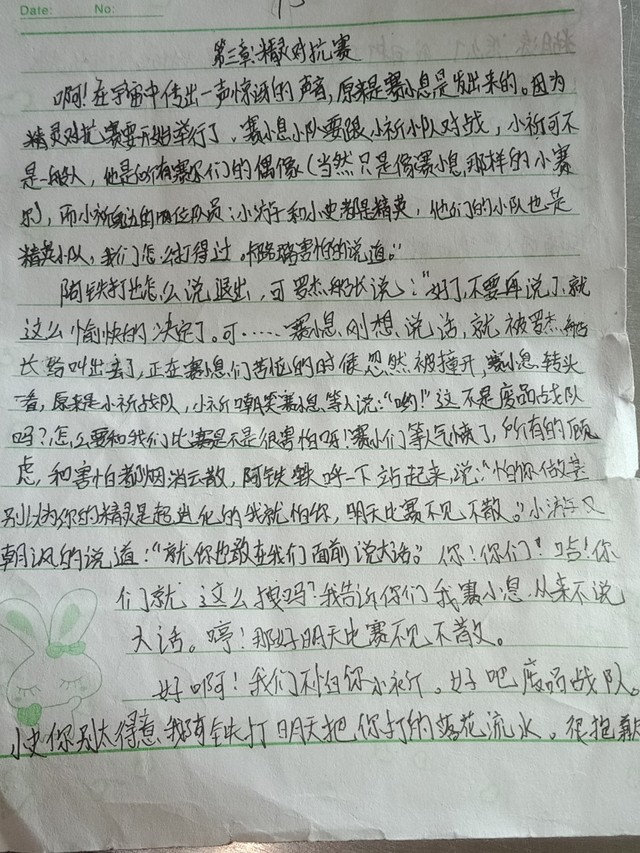 Date: No:
第三章:精灵对抗赛
啊!在宇宙中传出一声惊讶的声音,原来是赛小息是发出来的。因为
精灵对抗赛要开始举行了、赛小息小队要跟小祈小队对战,小祈可不
是一般人,他是所有赛尔们的偶像(当然只是像赛小息那样的小赛
尔),而小祈的两位队员:小游和小史都是精英,他们的小队也是
精英小队,我们怎么打得过。卡璐璐害怕的说道。"
阿铁打也怎么说退出,可罗杰船长说:"好了,不要再说了,就
这么愉快的决定了。可……赛小息刚想说话,就被罗杰船
长给叫出去了,正在赛小息们苦恼的时候忽然被撞开,赛小息转头
一看,原来是小祈战队,小祈嘲笑赛小息等人说:"哟!"这不是废品战队
吗?怎么要和我们比赛是不是很害怕呀!赛小们等人气愤了,所有的顾
虑,和害怕都烟消云散,阿铁 哗一下站起来,说:"怕你做甚
别以为你的精灵是超进化的我就怕你,明天比赛不见不散。"小游又
嘲讽的说道:"就你也敢在我们面前说大话。"你!你们!哈!你
们就这么拽吗?我告诉你们我赛小息从来不说
大话。哼!那好明天比赛不见不散。
好啊!我们不怕你小祈。好吧废品战队。
小史你别太得意,我阿铁打明天把你打的落花流水。很抱歉